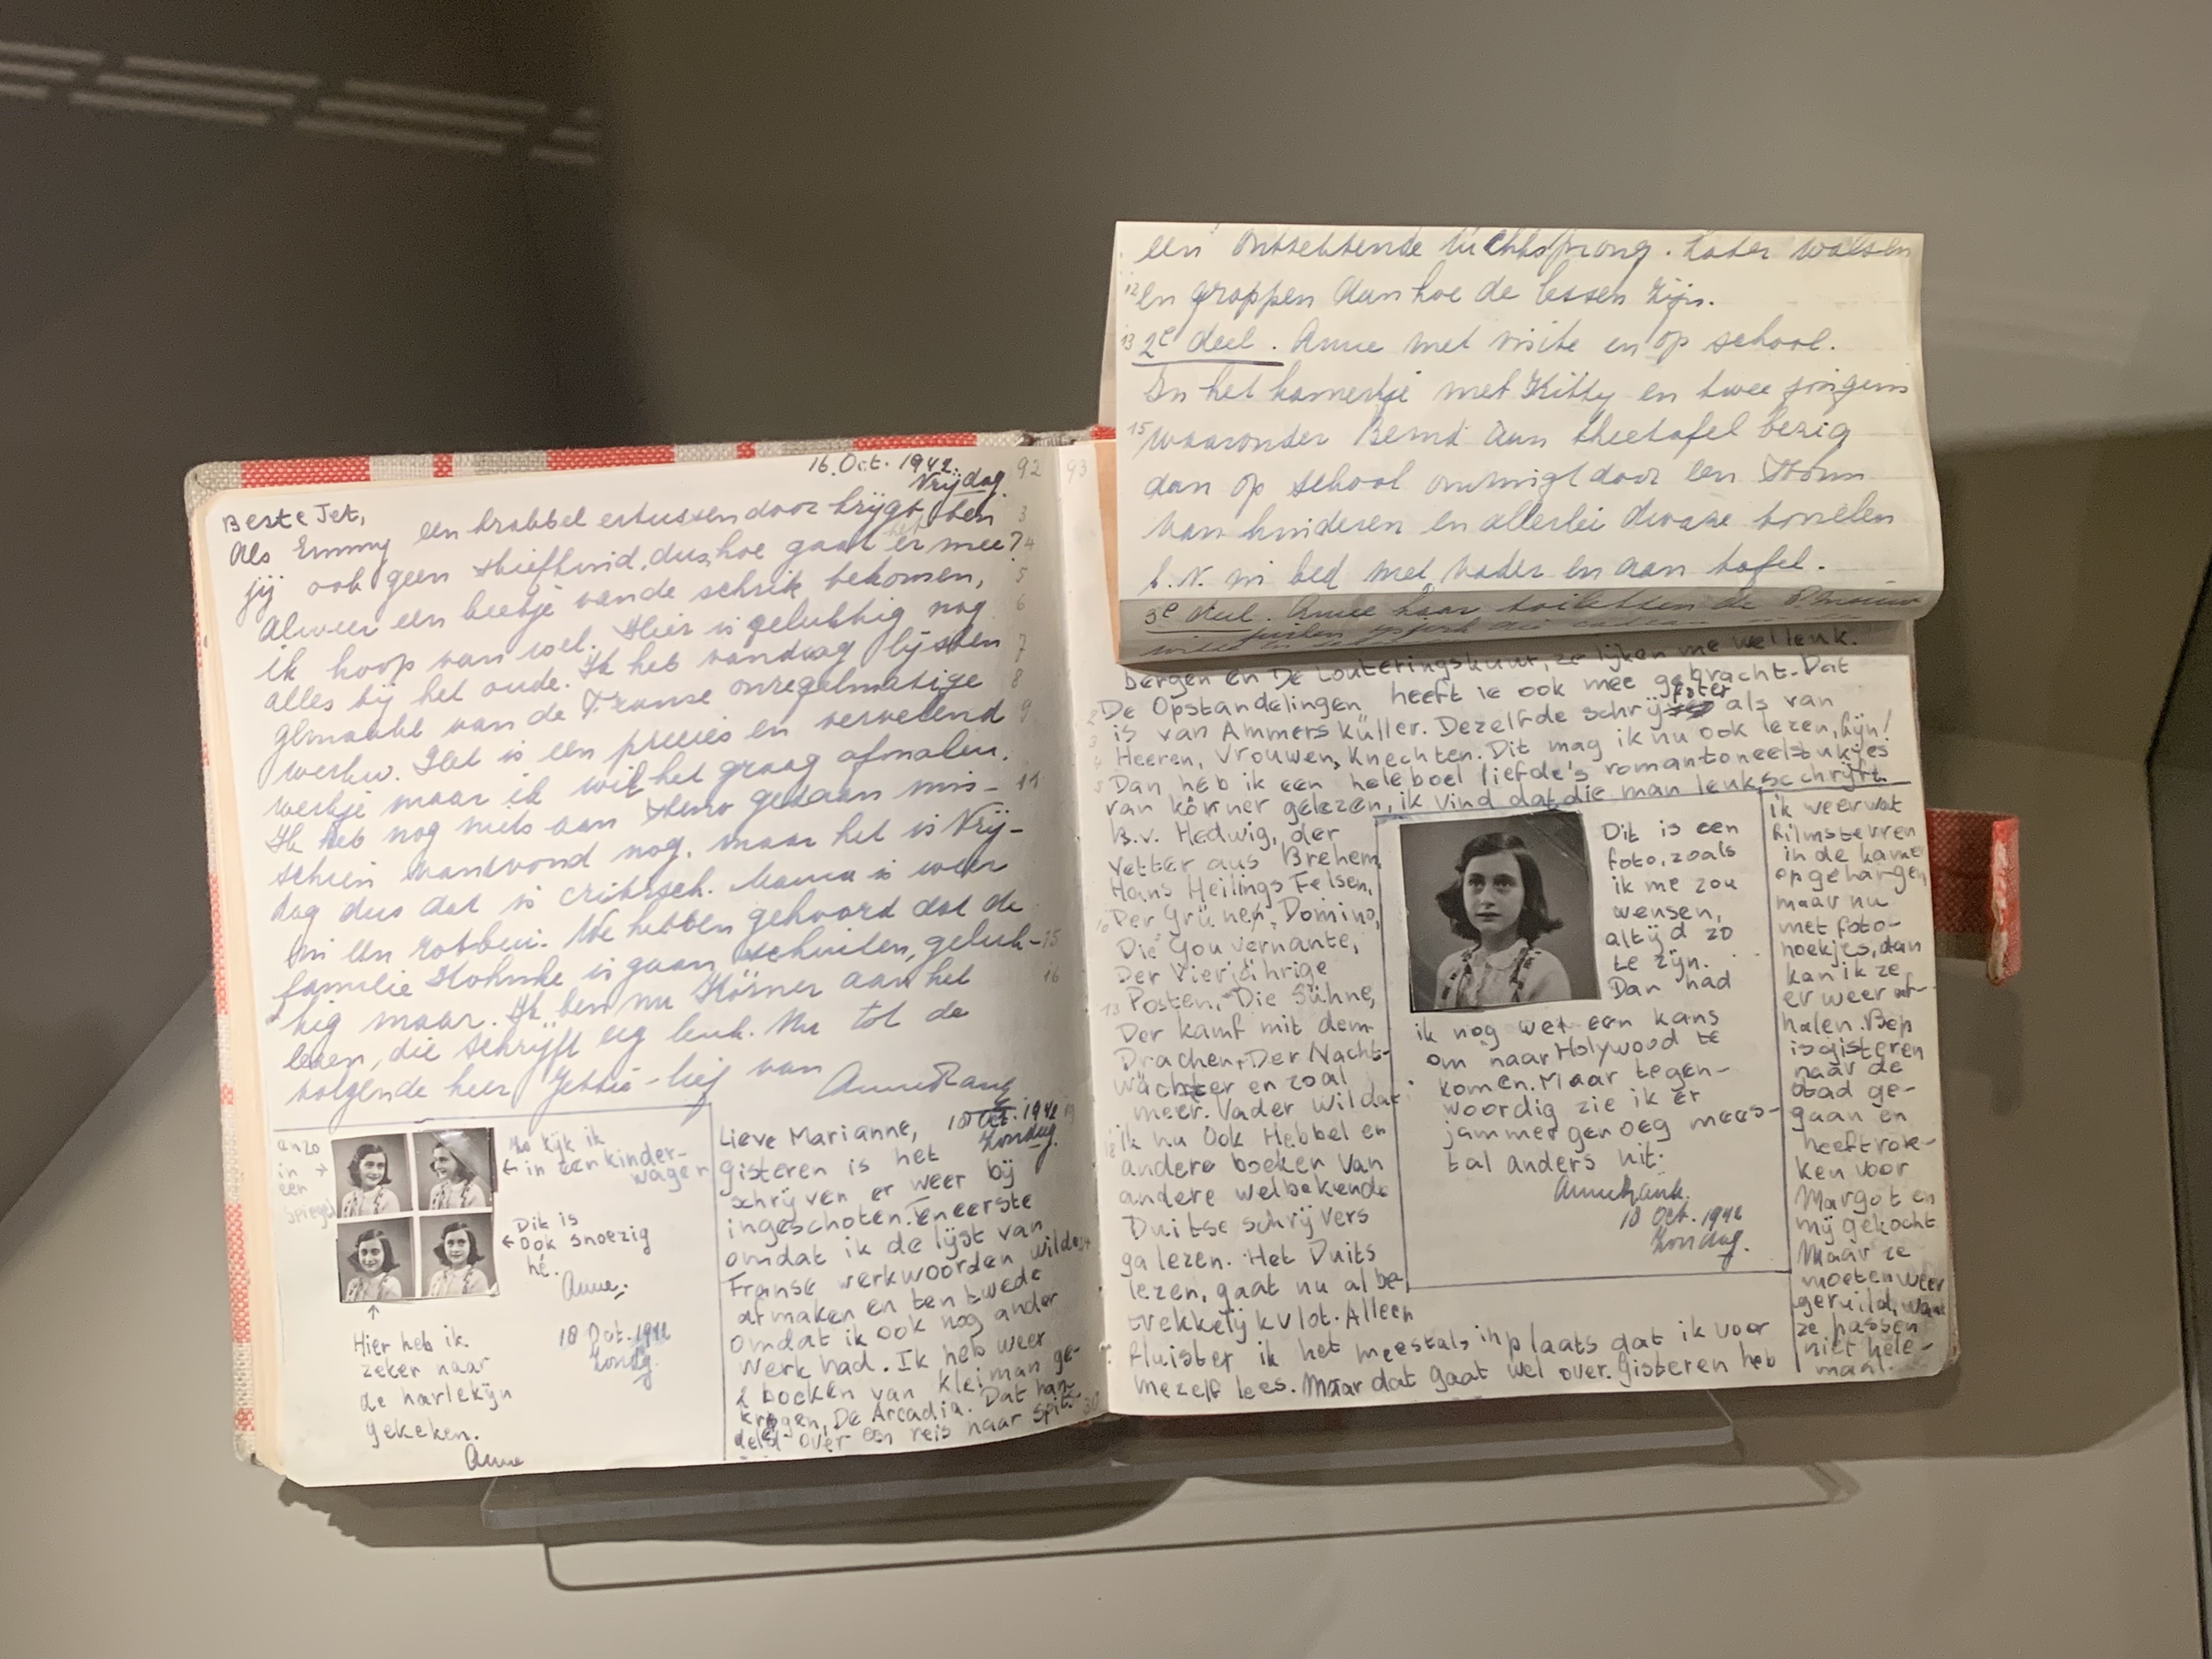 16. Oct. 1942.
Vrijdag.
92
Beste Jet,
Als Emmy een krabbel ertussendoor krijgt, ben
3
jij ook geen stiefkind, dus, hoe gaat het er mee?
4
Alweer een beetje van de schrik bekomen,
5
ik hoop van wel. Hier is gelukkig nog
6
alles bij het oude. Ik heb vandaag lijsten
7
gemaakt van de Franse onregelmatige
8
werkw. Het is een precies en vervelend
9
werkje maar ik wil het graag afmaken.
Ik heb nog niets aan Steno gedaan mis-
11
schien vanavond nog, maar het is Vrij-
dag dus dat is critisch. Mama is weer
in een rotbui. We hebben gehoord dat de
familie Kohnke is gaan schuilen, geluk-
15
kig maar. Ik ben nu Körner aan het
16
lezen, die schrijft erg leuk. Nu tot de
volgende keer Jettie-lief van
Anne Frank
anzo
in →
een
spiegel
Zo kijk ik
← in een kinder-
wagen
Dit is
← ook snoezig
hè.
Anne.
18 Oct. 1942
Zondag.
↑
Hier heb ik
zeker naar
de harlekijn
gekeken.
Anne
Lieve Marianne,
18 Oct. 1942
Zondag.
gisteren is het
schrijven er weer bij
ingeschoten. Ten eerste
omdat ik de lijst van
Franse werkwoorden wilde
afmaken en ten twede
omdat ik ook nog ander
werk had. Ik heb weer
2 boeken van Kleiman ge-
kregen, De Arcadia. Dat han-
delt over een reis naar Spits-
30
93
een ontzettende luchtsprong. Later walsen
12
en grappen aan hoe de lessen zijn.
13
2e deel. Anne met visite en op school.
In het kamertje met Kitty en twee jongens
15
waaronder Bernd aan theetafel bezig
dan op school omringt door een stroom
van kinderen en allerlei dwaze tonelen
b.v. in bed met vader en aan tafel.
3e deel. Anne haar toiletten de
bergen en De Louteringskuur, ze lijken me wel leuk.
De Opstandelingen heeft ie ook mee gebracht. Dat
2
is van Ammers Küller. Dezelfde schrijfster als van
3
Heeren, Vrouwen, Knechten. Dit mag ik nu ook lezen, fijn!
4
Dan heb ik een heleboel liefde's romantoneelstukjes
5
van Körner gelezen, ik vind dat die man leuk schrijft.
B.v. Hedwig, der
Vetter aus Brehem,
Hans Heilings Felsen,
Der Grünen, Domino,
10
Die Gouvernante,
Der Vierjährige
Posten, Die Sühne,
13
Der kamf mit dem
Drachen, Der Nacht-
wächter en zoal
meer. Vader wil dat
ik nu ook Hebbel en
18
andere boeken van
andere welbekende
Duitse schrijvers
ga lezen. Het Duits
lezen, gaat nu al be-
trekkelijk vlot. Alleen
fluister ik het meestals, inplaats dat ik voor
mezelf lees. Maar dat gaat wel over. Gisteren heb
Dit is een
foto, zoals
ik me zou
wensen,
altijd zo
te zijn.
Dan had
ik nog wel een kans
om naar Holywood te
komen. Maar tegen-
woordig zie ik er
jammer genoeg mees-
tal anders uit.
Annefrank.
18 Oct. 1942
Zondag.
ik weer wat
filmsterren
in de kamer
opgehangen
maar nu
met foto-
hoekjes, dan
kan ik ze
er weer af-
halen. Bep
is gisteren
naar de
stad ge-
gaan en
heeft rok-
ken voor
Margot en
mij gekocht
Maar ze
moeten weer
geruild, want
ze passen
niet hele-
maal.